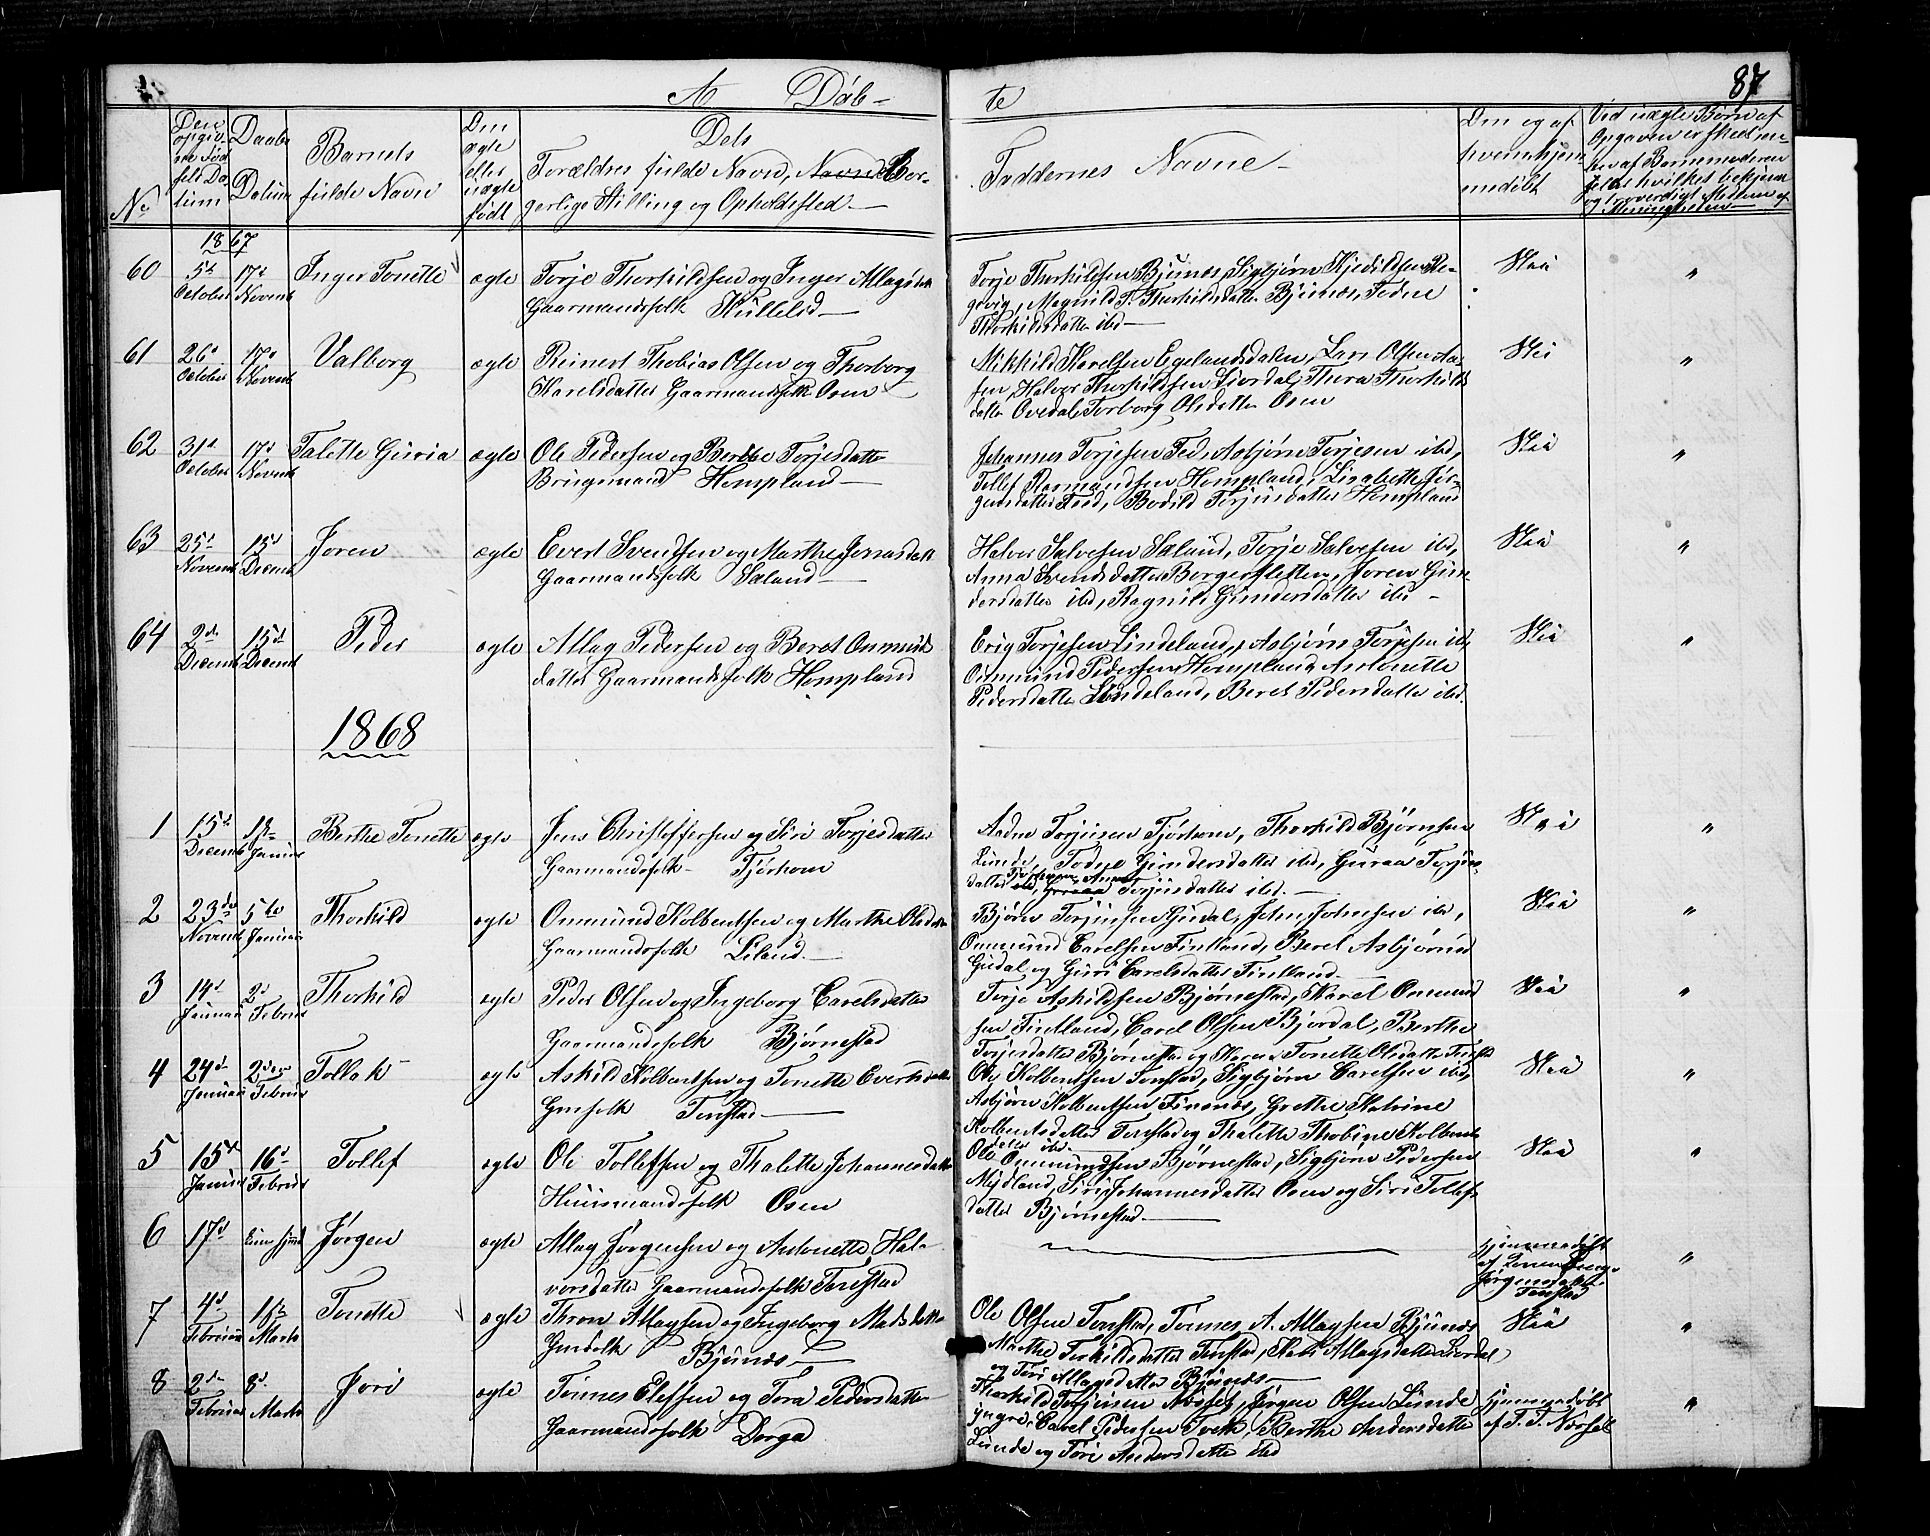 A Døb- te 87
No
Den opgivne Fødsels Datum
Daabs Datum
Barnets fulde Navn
Om ægte eller uægte født
Dets Forældres fulde Navn, Navn Borgerlige Stilling og Opholdssted
Faddernes Navne
Om og af hvem hjemmedøbt
Ved uægte Børn af Opgaven er skeet
1867
60 5te October 17de Novemb Inger Tonette ægte Torje Thorkildsen og Inger Atlagsdatter
Gaarmandsfolk Skullelid
Torje Thorkildsen Bjunes, Sigbjørn Kjedilsen
Magnild T. Thorkildsdatter Bjunes, Todne
Thorkildsdatter ibd
Nei "
61 26d October 17d Novemb Valborg ægte Reinert Thobias Olsen og Thorborg
Karelsdatter Gaarmandsfolk Osen
Mikkild Karelsen Egelandsdalen, Lars Olsen Aasen, Halvor Thorkildsen Liordal, Thora Thorkildsdatter Ovedal, Torborg Olsdatter Osen
Nei "
62 31d October 17d Novemb Talette Guria ægte Ole Pedersen og Berthe Torjesdatter
Brugsmand Hompland
Johannes Torjesen Fed, Asbjørn Torjesen ibd,
Tollef Rasmundsen Hompland, Lisabette Jørgensdatter Fed, Bodild Torjusdatter Hompland
Nei "
63 25d Novemb 15d Decemb Joren ægte Evert Svendsen og Marthe Jonasdatt
Gaarmandsfolk Saland
Halvor Salvesen Saland, Torje Salvesen ibd,
Anna Svendsdatter Borgersletten, Joren Gundersdatter ibd, Ragnild Gundersdatter ibd
Nei "
64 2de Decemb 15d Decemb Peder ægte Atlag Pedersen og Beret Onmundsdatter Gaarmandsfolk Hompland
Erig Torjesen Lindeland, Asbjørn Torjesen ibd,
Onmund Pedersen Hompland, Antonette
Pedersdatter Lindeland, Beret Pedersdatter ibd.
Nei "
1868
1 15de Decemb 1ste Januar Berthe Tonette ægte Jens Christoffersen og Siri Torjesdatter
Gaarmandsfolk Tjørhom
Aadne Torjusen Tjørhom, Thorkild Bjørnsen
Lunde, Todne Gundersdatter ibd, Guraa Torjusdatter Tjørhom, Anna Torjusdatter ibd.
Nei "
2 23de Novemb 5te Januar Thorkild ægte Onmund Kolbentsen og Marthe Olsdatter
Gaarmandsfolk Liland
Bjørn Torjusen Gudal, John Johnsen ibd,
Onmund Carelsen Fintland, Beret Asbjørnsd
Gudal og Guri Carelsdatter Fintland
Nei "
3 14d Januar 2d Februar Thorkild ægte Peder Olsen og Ingeborg Carelsdatter
Gaarmandsfolk Bjørnestad
Torje Askildsen Bjørnestad, Karel Onmundsen Fintland, Carel Olsen Bjordal, Berthe
Torjesdatter Bjørnestad og Karen Tonette Olsdatter
Nei "
4 24d Januar 2den Februar Tollak ægte Askild Kolbentsen og Tonette Evertsdatter
Gmfolk Tonstad
Ole Kolbentsen Tonstad, Sigbjørn Carelsen ibd,
Asbjørn Kolbentsen Finsnes, Grethe Katrine
Kolbentsdatter Tonstad og Thalette Thobine Kolbentsdatter ibd.
Nei "
5 15de Januar 16d Februar Tollef ægte Ole Tollefsen og Thalette Johannesdatter
Huusmandsfolk Osen
Ole Onmundsen Bjørnestad, Sigbjørn Pedersen
Mydland, Siri Johannesdatter Osen og Siri Tollefsdatter Bjørnestad
Nei "
6 17d Jørgen ægte Atlag Jørgensen og Antonette Halvorsdatter Gaarmandsfolk Tonstad
hjemmedøbt af Jørgensdatter Tonstad "
7 4d Februar 1ste Marts Tonette ægte Thron Atlagsen og Ingeborg Madsdatter
Gmfolk Bjunes
Ole Olsen Tonstad, Tønnes A. Atlagsen Bjunes
Marthe Torkildsdatter Tonstad, Atlagsdatter Liordal
og Tori Atlagsdatter Bjunes
Nei "
8 2de Februar 8d Marts Jori ægte Tønnes Elefsen og Tora Pedersdatter
Gaarmandsfolk Dorga
Thorkild Torjusen Nosset, Jørgen Olsen Lunde
yngre, Carel Pedersen Tvett, Berthe Andersdatter
Lunde og Tori Andersdatter ibd
hjemmedøbt af T. T. Nosset "